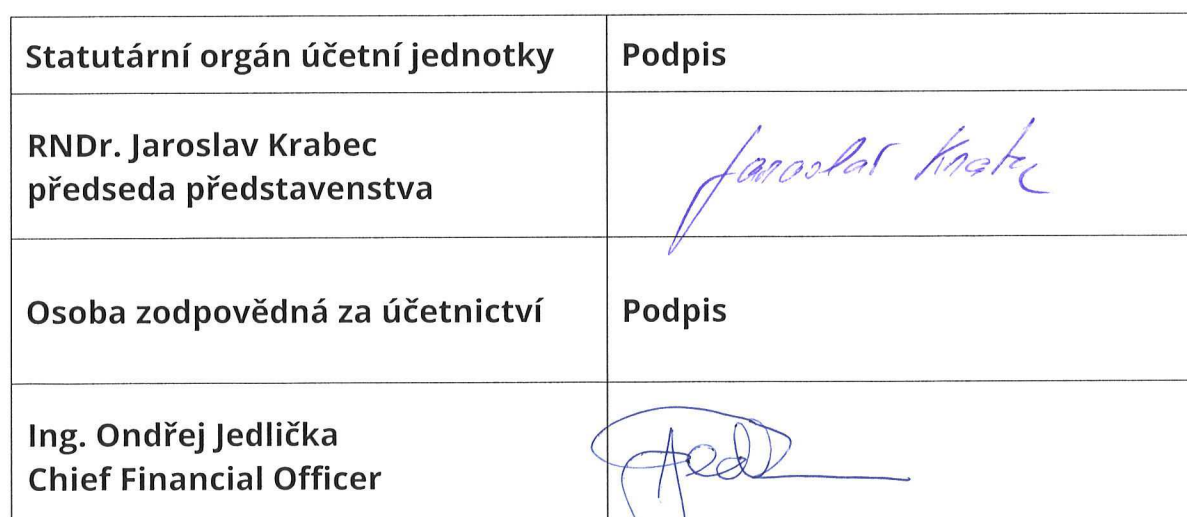 Statutární orgán účetní jednotky
Podpis
RNDr. Jaroslav Krabec
předseda představenstva
Jaroslav Krabec
Osoba zodpovědná za účetnictví
Podpis
Ing. Ondřej Jedlička
Chief Financial Officer